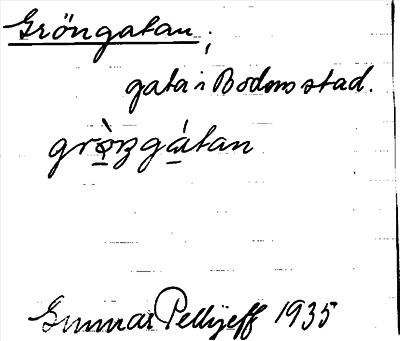 Gröngatan;
gata i Bodens stad.
grò̱ngá̱tan
Gunnar Pellijeff 1935